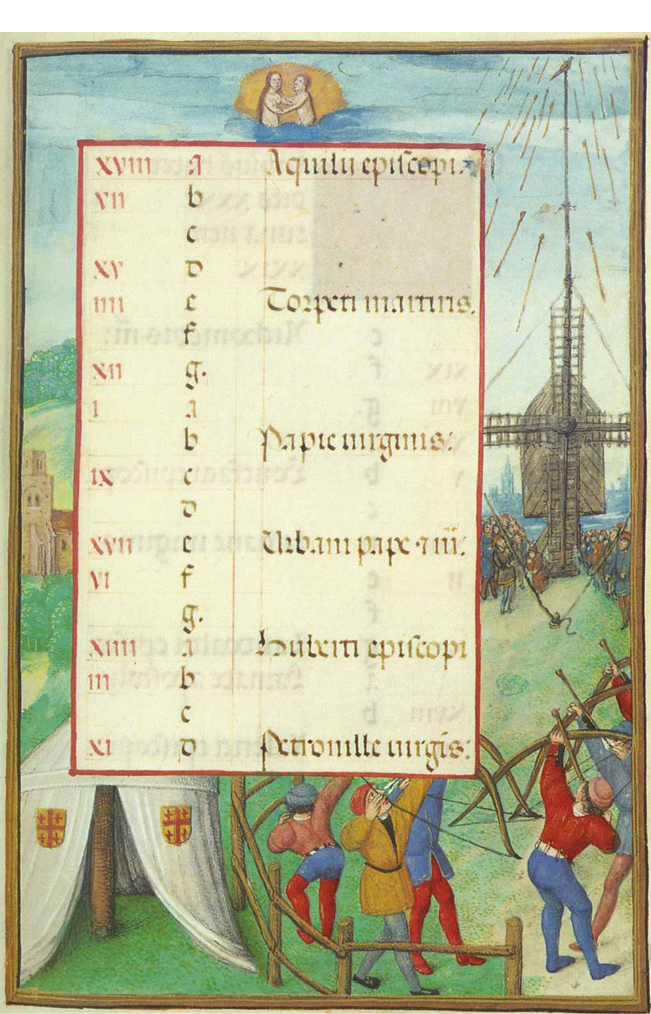 xviii a Aquilii episcopi.
vii b
c
xv d
iiii e Torpeti martiris.
f
xii g.
i a
b Papie virginis.
ix c
d
xvii e Urbani pape
vi f
g.
xiiii a Huberti episcopi
iii b
c
xi d Petronille virgis.